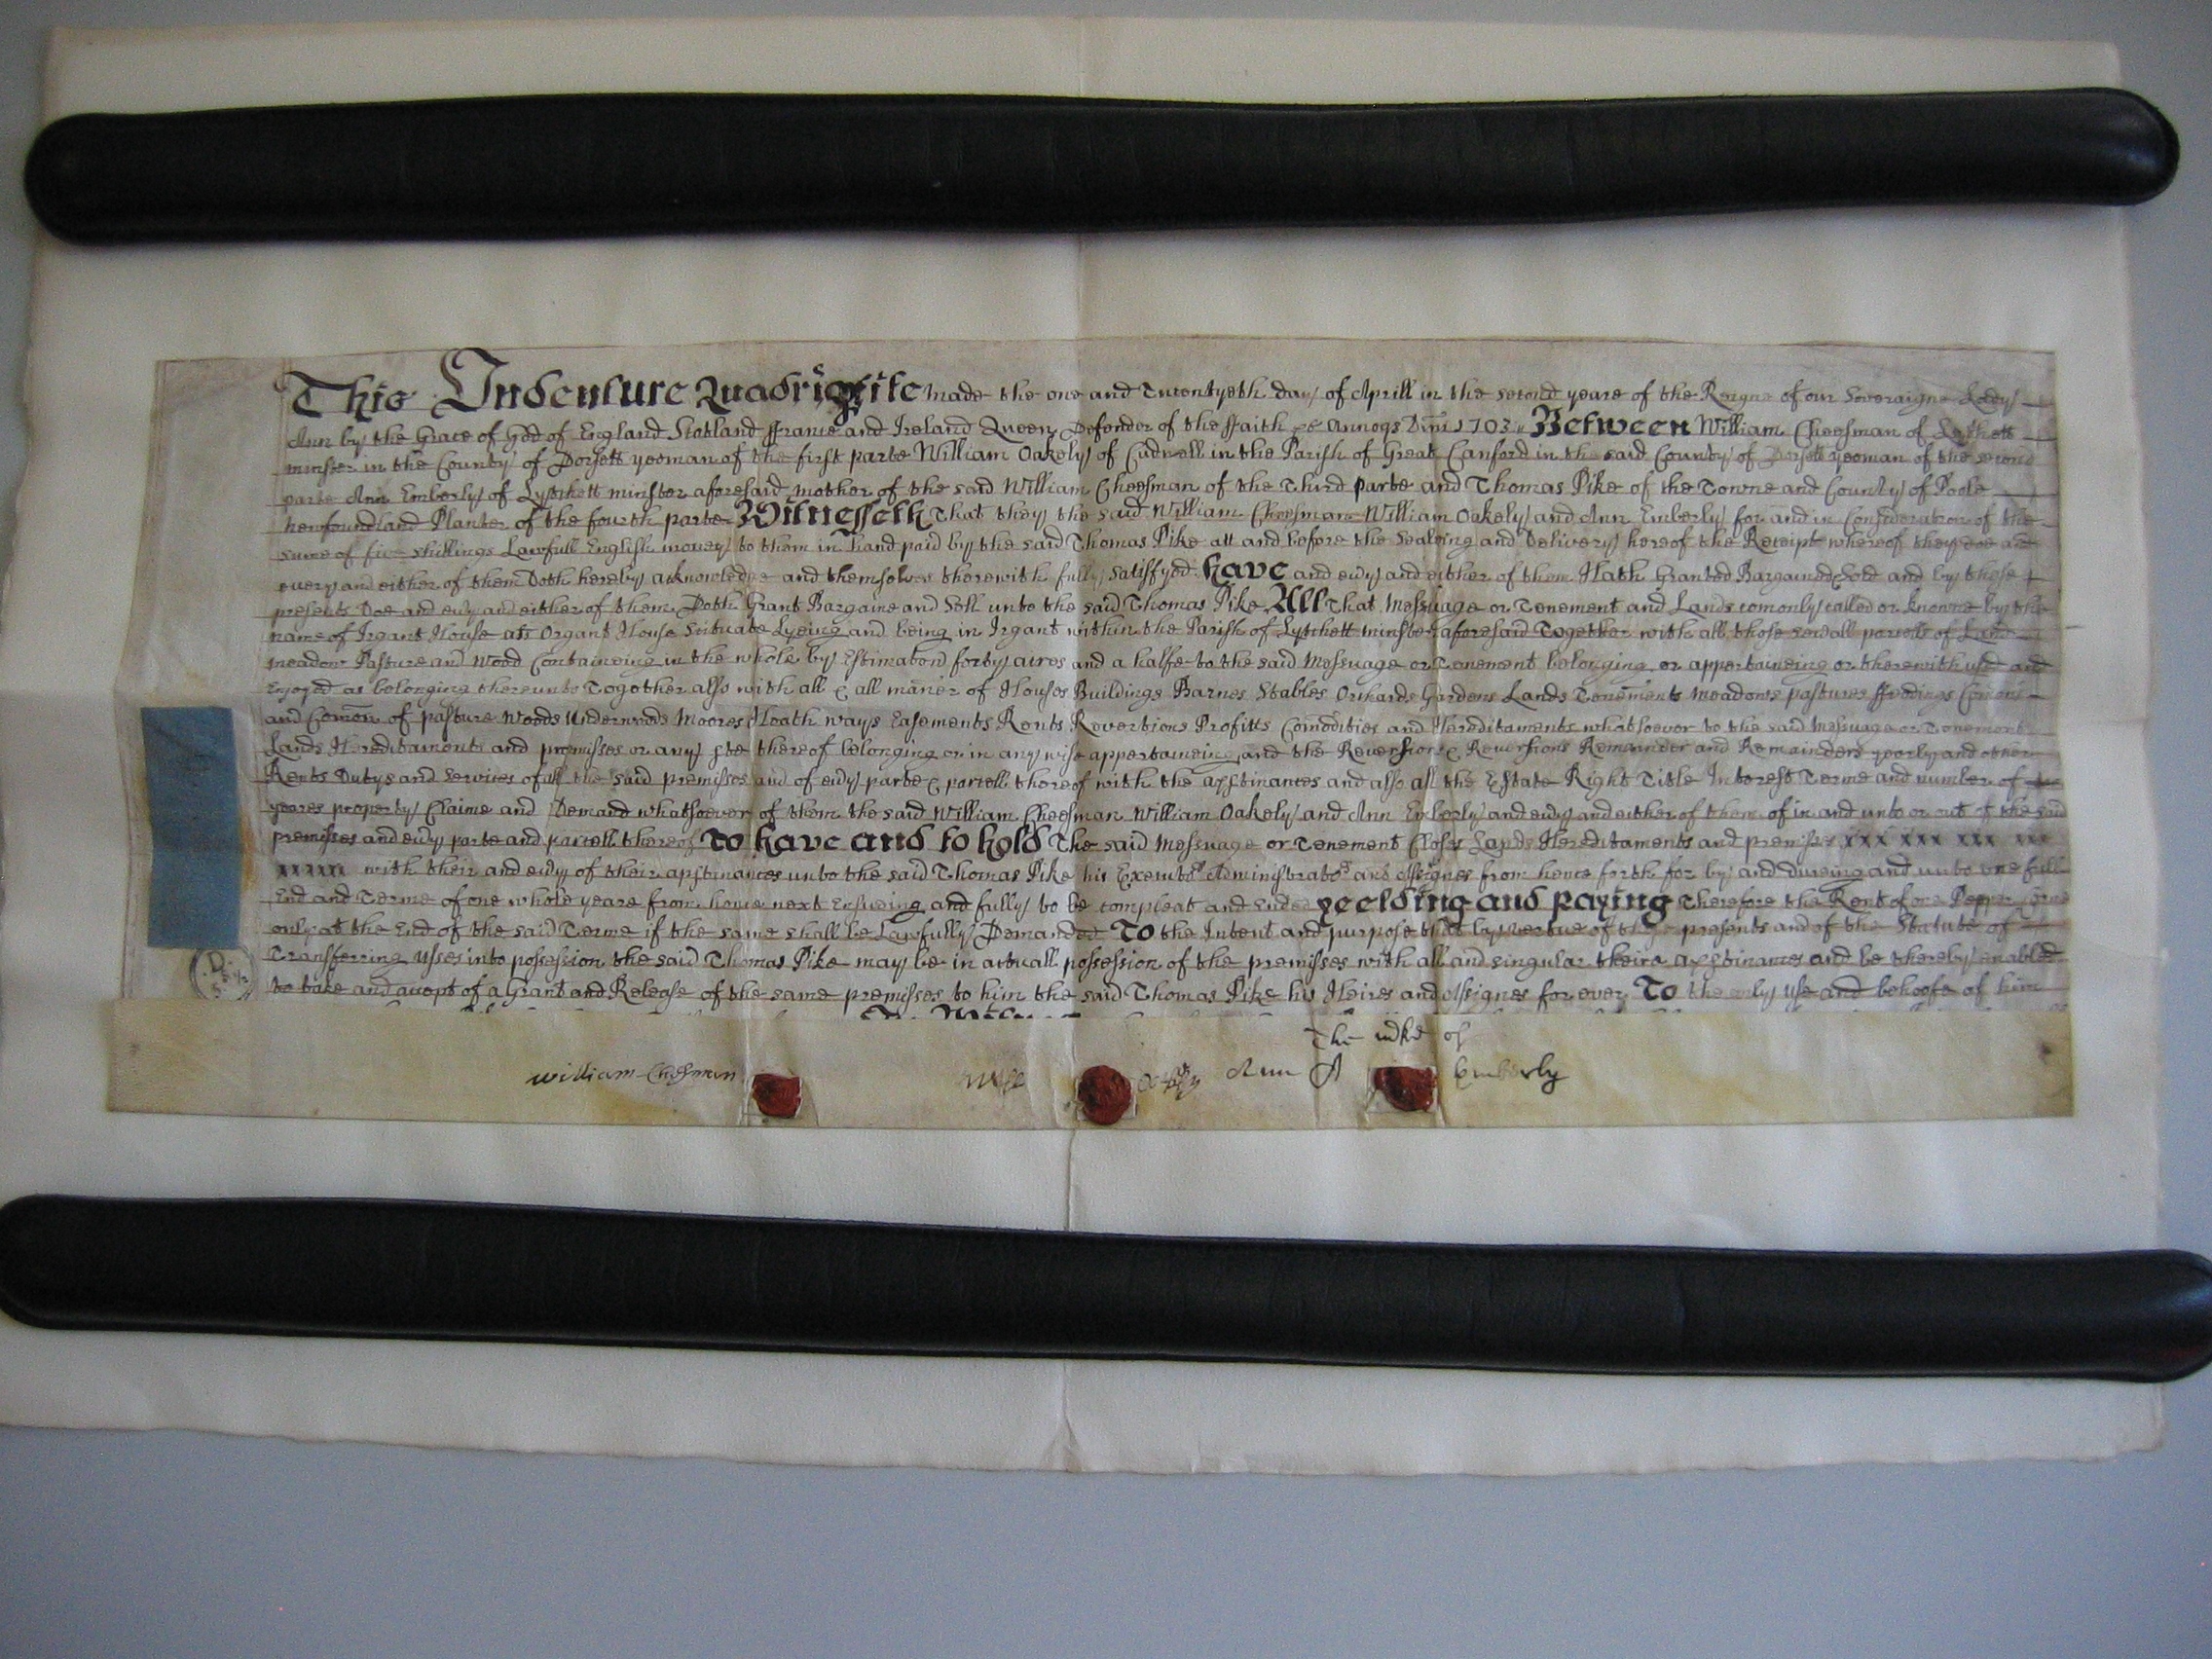 This Indenture Quadripartite made the one and Twentyeth day of Aprill in the second yeare of the Reigne of our Soveraigne Lady
Ann by the Grace of God of England Scotland ffrance and Ireland Queen Defender of the ffaith &c Annoqs Dmi 1703 Between William Cheesman of Lytchett
minster in the County of Dorsett yeoman of the first parte William Oakely of Cudnell in the Parish of Great Canford in the said County of Dorsett yeoman of the second
parte Ann Emberly of Lytchett minster aforesaid mother of the said William Cheesman of the Third parte and Thomas Pike of the Towne and County of Poole
newfoundland Planter of the fourth parte Witnesseth That they the said William Cheesman William Oakely and Ann Emberly for and in Consideration of the
sume of five shillings Lawfull English money to them in hand paid by the said Thomas Pike att and before the Sealeing and Delivery hereof the Receipt whereof they doe and
every and either of them Doth hereby acknowledge and themselves therewith fully satisfyed have and evy and either of them Hath Granted Bargained Sold and by these
presents Doe and evy and either of them Doth Grant Bargaine and Sell unto the said Thomas Pike All That Messuage or Tenement and Lands comonly called or knowne by the
name of Irgant House als Organt House Scituate Lyeing and being in Irgant within the Parish of Lytchett minster aforesaid Together with all those sevall parcells of Land
meadow Pasture and Wood Containeing in the whole by Estimation forty acres and a halfe to the said Messuage or Tenement belonging or appertaineing or therewith used and
Enjoyed as belonging thereunto Together also with all & all maner of Houses Buildings Barnes Stables Orchards Gardens Lands Tenements meadows pastures ffeedings Comons
and Comon of pasture Woods Underwoods Moores Heath ways Easements Rents Revertions Profitts Comodities and Hereditaments whatsoever to the said Messuage or Tenement
Lands Hereditaments and premisses or any pte thereof belonging or in any wise appertaineing and the Reversion & Reversions Remainder and Remainders yearly and other
Rents Dutys and Services of all the said premisses and of evy parte & parcell thereof with the apptinances and also all the Estate Right Title Interest Terme and number of
yeares property Claime and Demand whatsoever of them the said William Cheesman William Oakely and Ann Emberly and evy and either of them of in and unto or out of the said
premisses and evy parte and parcell thereof To have and to hold The said Messuage or Tenement Closes Lands Hereditaments and premisses xxx xxx xxx xxx
xxxxx with their and evy of their apptinances unto the said Thomas Pike his Executrs Administrators and Assignes from hence forth for by and dureing and unto one full
End and Terme of one whole yeare from hence next Ensueing and fully to be compleat and Ended yeelding and paying Therefore the Rent of one Pepper corne
only at the End of the said Terme if the same shall be Lawfully Demanded To the Intent and purpose that by vertue of these presents and of the Statute of
Transferring Usses into possession the said Thomas Pike may be in actuall possession of the premisses with all and singular theire apptinances and be thereby enabled
to take and accept of a Grant and Release of the same premisses to him the said Thomas Pike his Heires and Assignes for ever To the only Use and behoofe of him
The mke of
William Chesman Ann A Emberly